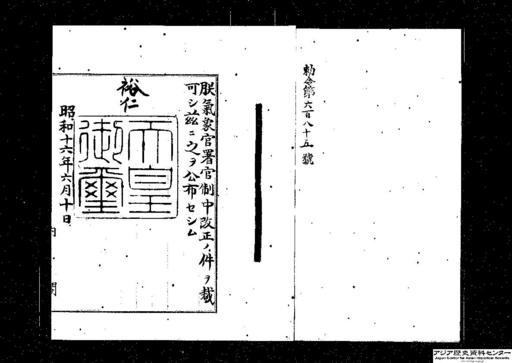 勅令第六百八十五號
朕氣象官署官制中改正ノ件ヲ裁
可シ茲ニ之ヲ公布セシム
裕仁
天皇
御璽
昭和十六年六月十日
内閣
アジア歴史資料センター
Japan Center for Asian Historical Records